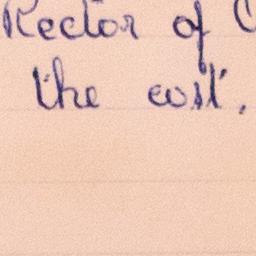 Rector of
the cost,